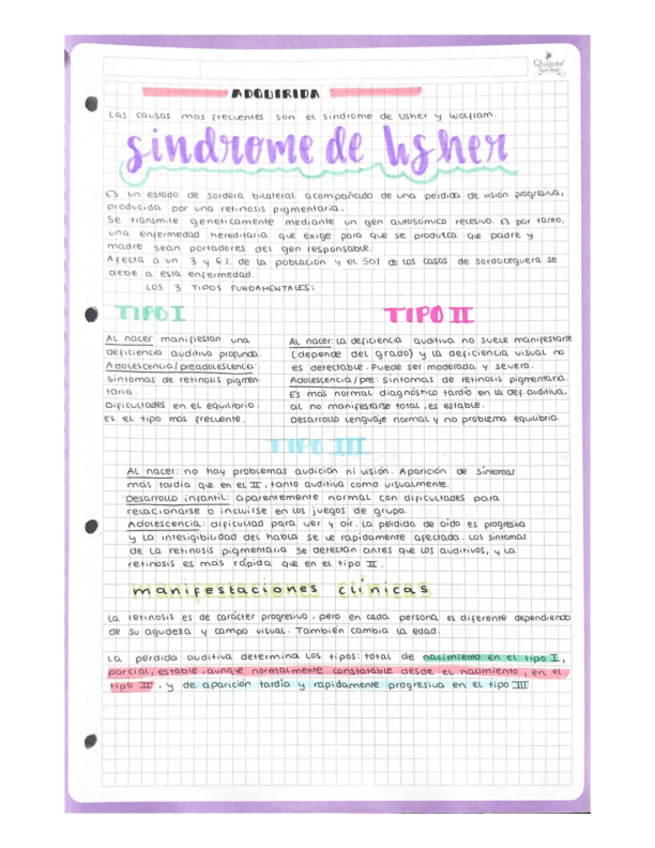 Quijote
ADQUIRIDA
Las causas mas frecuentes son el sindrome de Usher y wolfram.
sindrome de Usher
Es un estado de sordera bilateral acompañado de una perdida de vision progresiva,
producida por una retinosis pigmentaria.
Se transmite geneticamente mediante un gen autosómico recesivo. Es por tanto,
una enfermedad hereditaria que exige para que se produzca que padre y
madre sean portadores del gen responsable.
Afecta a un 3 y 6% de la población y el 50% de los casos de sordoceguera se
debe a esta enfermedad.
LOS 3 TIPOS FUNDAMENTALES:
TIPO I
Al nacer manifiestan una
deficiencia auditiva profunda.
Adolescencia/preadolescencia:
Sintomas de retinosis pigmen-
taria.
Dificultades en el equilibrio.
Es el tipo mas frecuente.
TIPO II
Al nacer: La deficiencia auditiva no suele manifestarse
(depende del grado) y la deficiencia visual no
es detectable. Puede ser moderada y severa.
Adolescencia/pre: Sintomas de retinosis pigmentaria.
Es mas normal diagnóstico tardío en la def. auditiva,
al no manifestarse total, es estable.
Desarrollo lenguaje normal y no problema equilibrio.
TIPO III
Al nacer: no hay problemas audición ni visión. Aparición de sintomas
más tardia que en el II, tanto auditiva como visualmente.
Desarrollo infantil: aparentemente normal con dificultades para
relacionarse o incluirse en los juegos de grupo.
Adolescencia: dificultad para ver y oír. La pérdida de oído es progresiva
y la inteligibilidad del habla se ve rápidamente afectada. Los sintomas
de la retinosis pigmentaria se detectan antes que los auditivos, y la
retinosis es más rápida que en el tipo II.
manifestaciones clínicas
La retinosis es de carácter progresivo, pero en cada persona es diferente dependiendo
de su agudeza y campo visual. También cambia la edad.
La pérdida auditiva determina los tipos: total de nacimiento en el tipo I,
parcial, estable, aunque normalmente constatable desde el nacimiento, en el
tipo II, y de aparición tardía y rapidamente progresiva en el tipo III